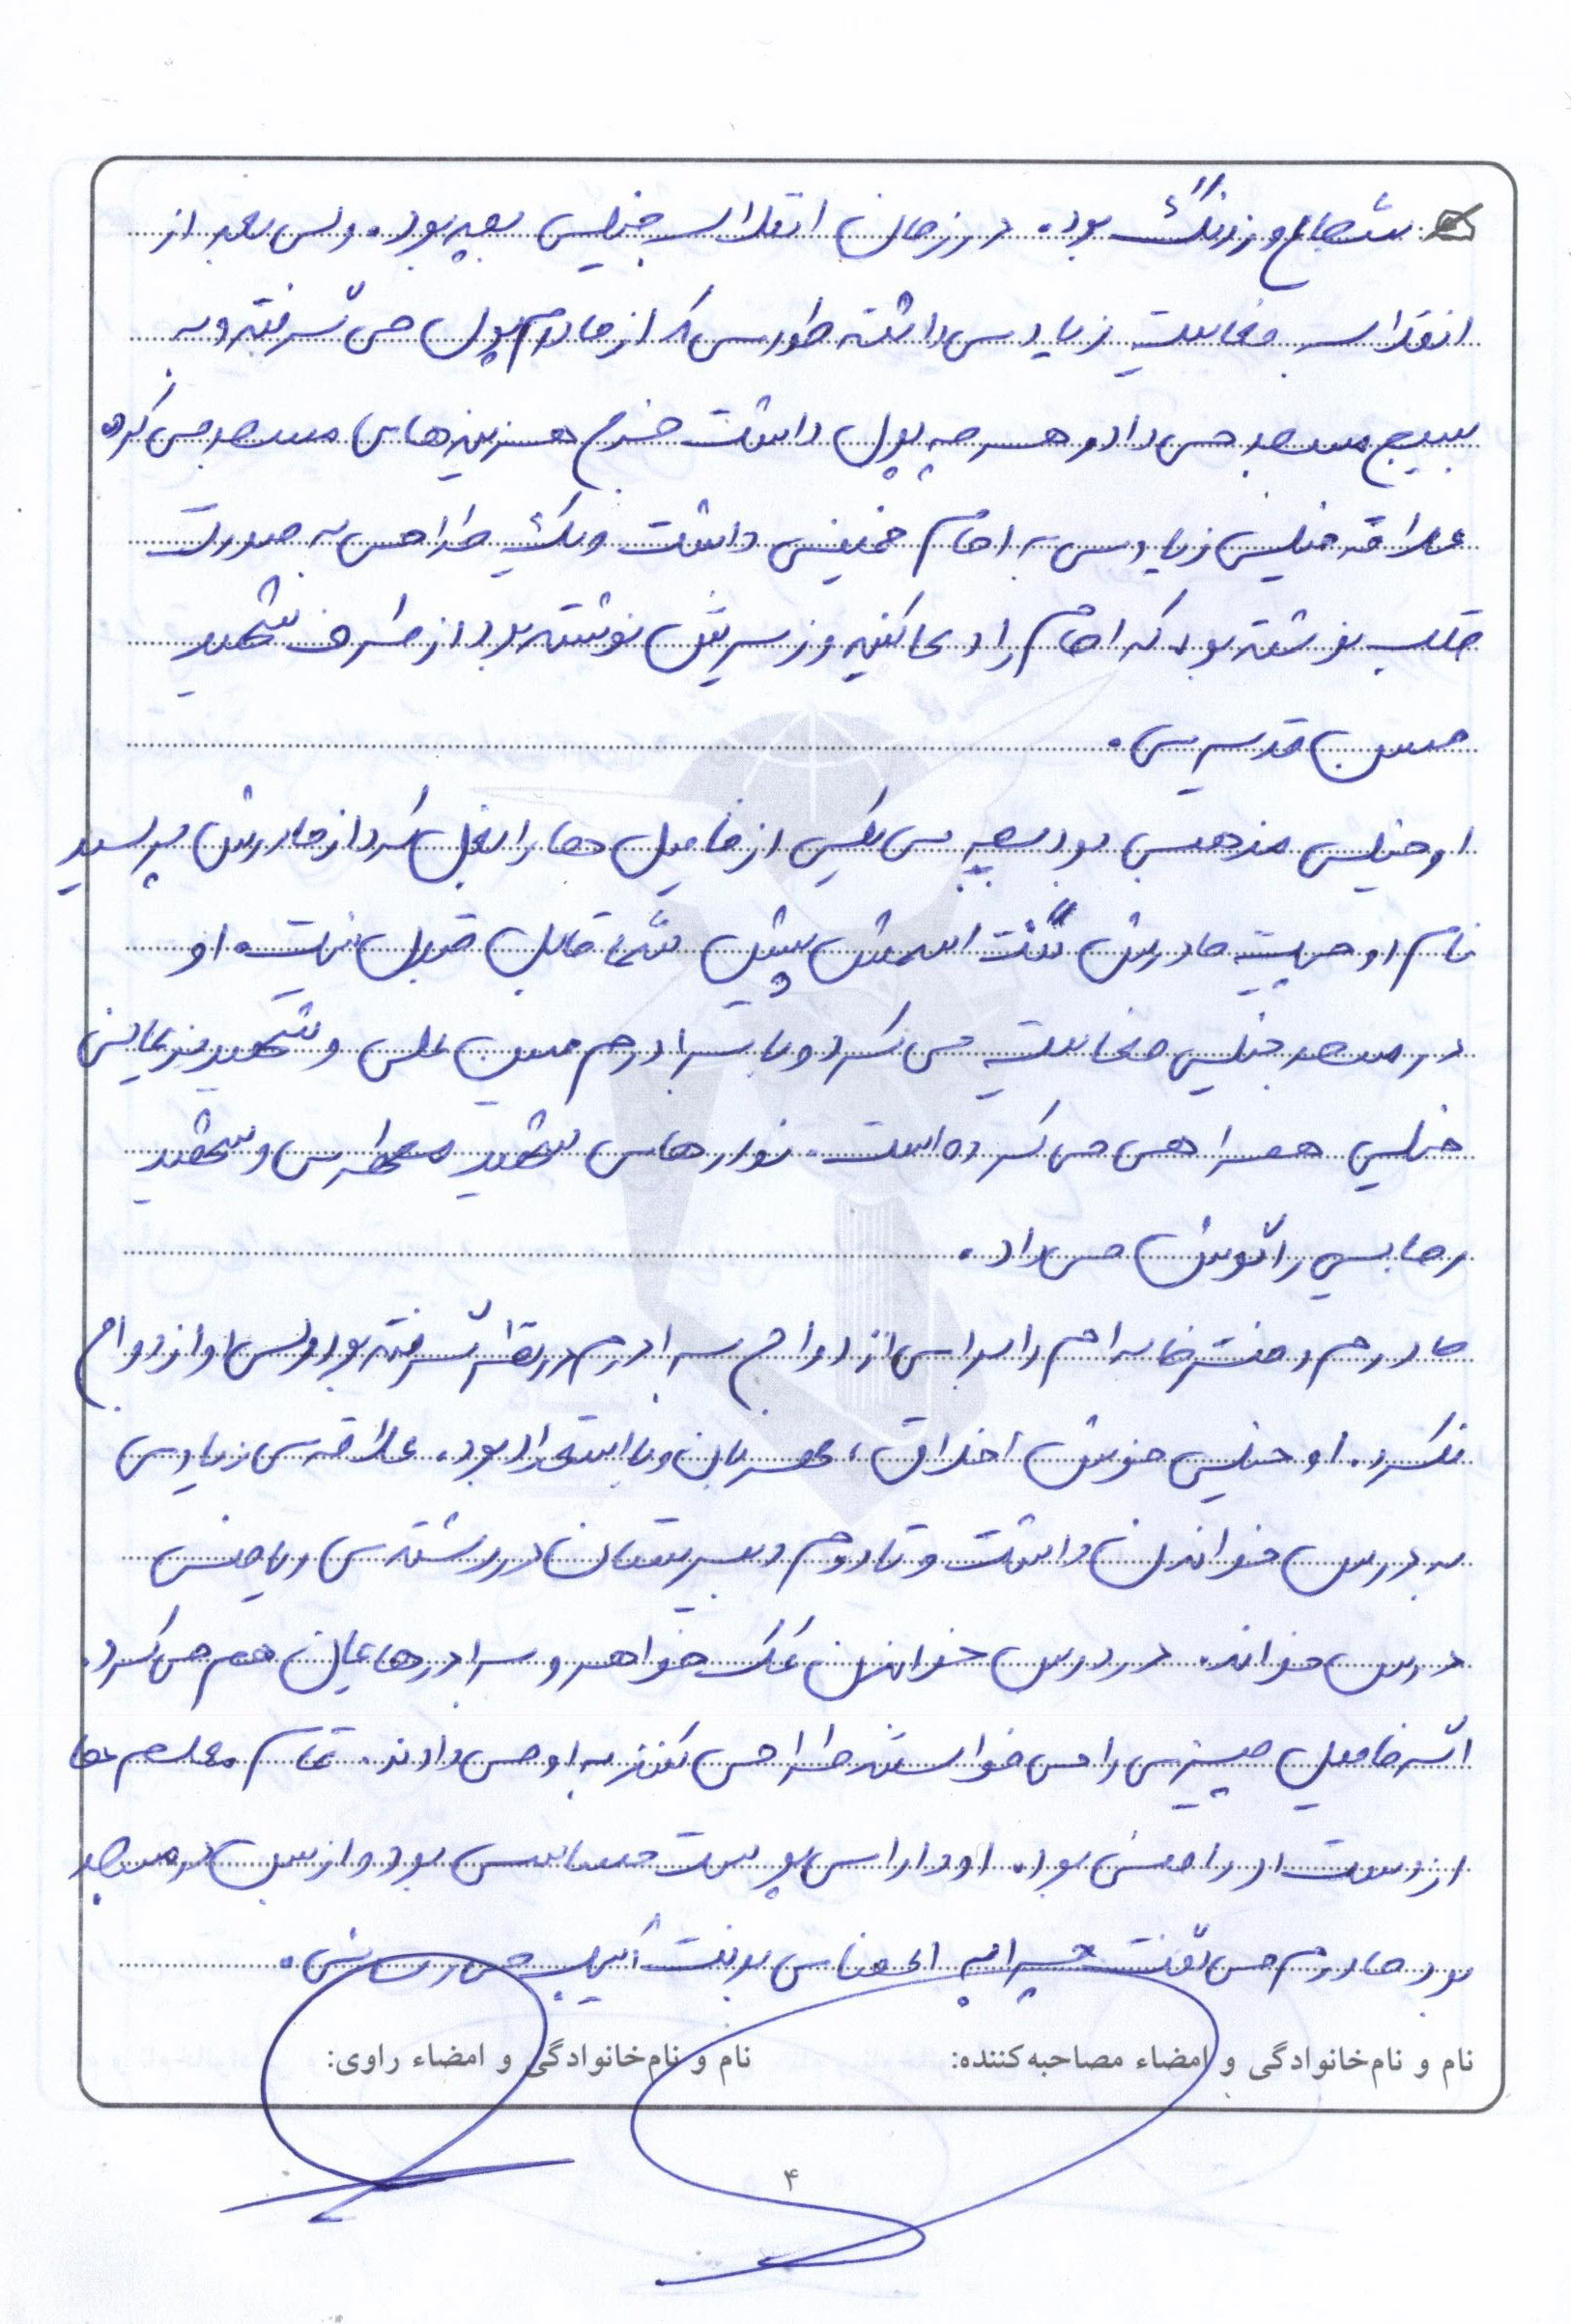 شجاع و زرنگ بود. در زمان انقلاب خیلی بچه بود. ولی بعد از
انقلاب فعالیت زیادی داشته طوری که از مادرم پول می گرفته و به
بسیج مسجد می داد و هر چه پول داشت خرج هزینه های مسجد می کرد
علاقه خیلی زیادی به امام خمینی داشت و یک طراحی به صورت
قلب نوشته بود که امام را دعا کنید و زیرش نوشته بود از طرف شهید
حسین قدیری.
او خیلی مذهبی بود بچه ی یکی از فامیل ها را بغل کرد از مادرش پرسید
نام او چیست مادرش گفت اسمش پیش شما قابل قبول نیست. او
در مسجد خیلی فعالیت می کرد و با برادرم حسین علی و شهید
خیلی همراهی می کرده است. نوارهای شهید مطهری و شهید
رجایی را گوش می داد.
مادرم دختر خاله ام را برای ازدواج برادرم در نظر گرفته بود ولی او ازدواج
نکرد. او خیلی خوش اخلاق، مهربان و با استعداد بود. علاقه ی زیادی
به درس خواندن داشت و تا دوم دبیرستان در رشته ی ریاضی
درس خواند. در درس خواندن کمک خواهر و برادرهایمان هم می کرد.
اگر فامیل چیزی را می خواستند طراحی کنند به او می دادند. تمام معلم ها
از دست او راضی بود. او دارای پوست حساسی بود و از بس در مسجد
بود مادرم می گفت چرا به اعضای بدنت آسیب می رسانی.
نام و نام‌خانوادگی و امضاء مصاحبه‌کننده:
نام و نام‌خانوادگی و امضاء راوی:
۴